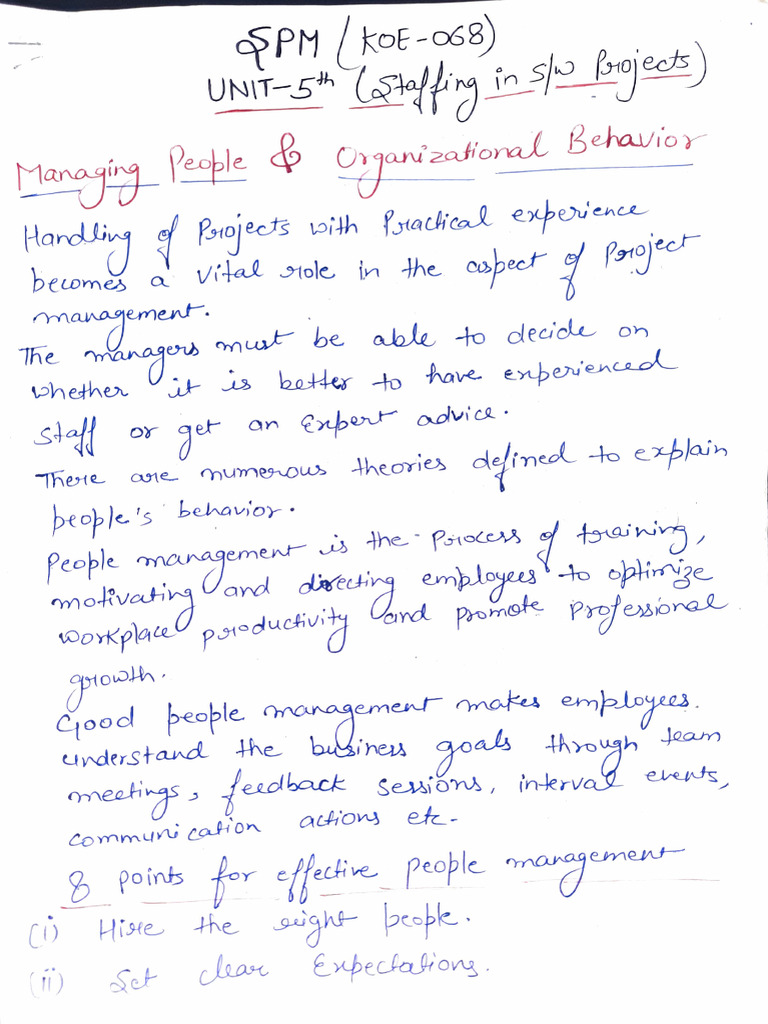 SPM (KOE-068)
UNIT-5th (Staffing in S/W Projects)
Managing People & Organizational Behavior
Handling of Projects with Practical experience
becomes a vital role in the aspect of Project
management.
The managers must be able to decide on
whether it is better to have experienced
staff or get an Expert advice.
There are numerous theories defined to explain
people's behavior.
People management is the process of training,
motivating and directing employees to optimize
workplace productivity and promote professional
growth.
Good people management makes employees.
understand the business goals through team
meetings, feedback sessions, interval events,
communication actions etc.
8 points for effective people management
(i) Hire the right people.
(ii) Set clear Expectations.